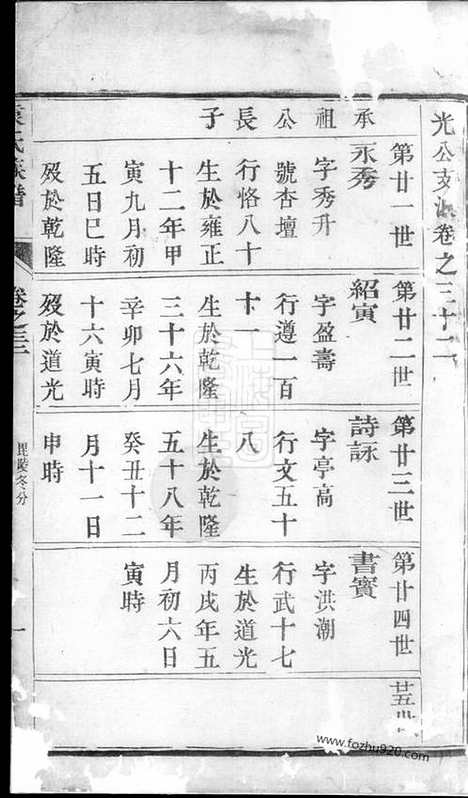 光公支派卷之三十二
第廿一世
永秀
承祖公長子
字秀升
號杏壇
行恪八十
生於雍正
十二年甲
寅九月初
五日巳時
歿於乾隆
第廿二世
紹寅
字盈壽
行遵一百
十一
生於乾隆
三十六年
辛卯七月
十六寅時
歿於道光
第廿三世
詩詠
字亭高
行文五十
八
生於乾隆
五十八年
癸丑十二
月十一日
申時
第廿四世
書賓
字洪潮
行武十七
生於道光
丙戌年五
月初六日
寅時
氏族譜
卷之三
毘陵冬分
一
www.fozhu920.com